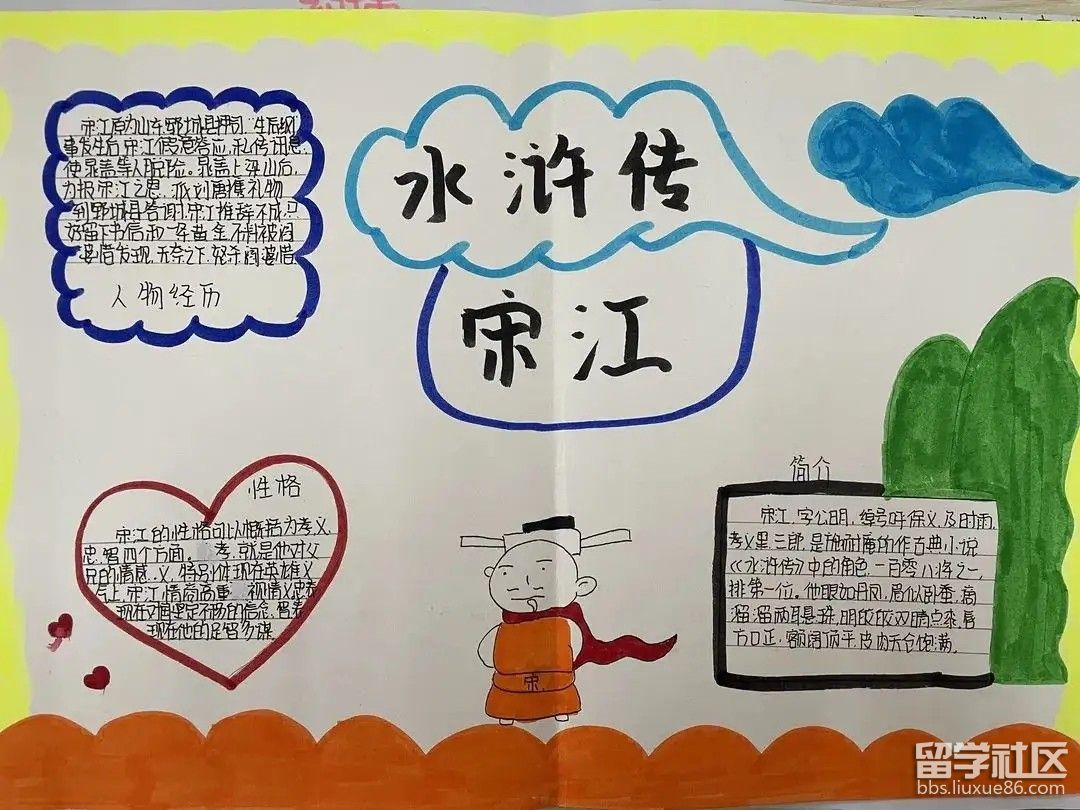 水浒传
宋江
宋江原为山东郓城县押司
事发生后宋江假意答应,私传讯息,
使晁盖等人脱险。晁盖上梁山后,
为报宋江之恩,派刘唐携礼物
到郓城县答谢,宋江推辞不成,只
好留下书信和一条黄金不料被阎
婆惜发现,无奈之下,怒杀阎婆惜
人物经历
性格
宋江的性格可以概括为孝义
忠智四个方面。孝,就是他对父
兄的情感。义,特别体现在英雄义
气上,宋江情商高重视情义忠表
现在对国坚定不移的信念,智表
现在他的足智多谋
宋
简介
宋江,字公明,绰号呼保义,及时雨,
孝义黑三郎,是施耐庵的作古典小说
《水浒传》中的角色,一百零八将之一,
排第一位。他眼如丹凤,眉似卧蚕,滴
溜溜两耳悬珠,明皎皎双睛点漆,唇
方口正,额阔顶平,皮肉天仓饱满。
留学社区
bbs.liuxue86.com